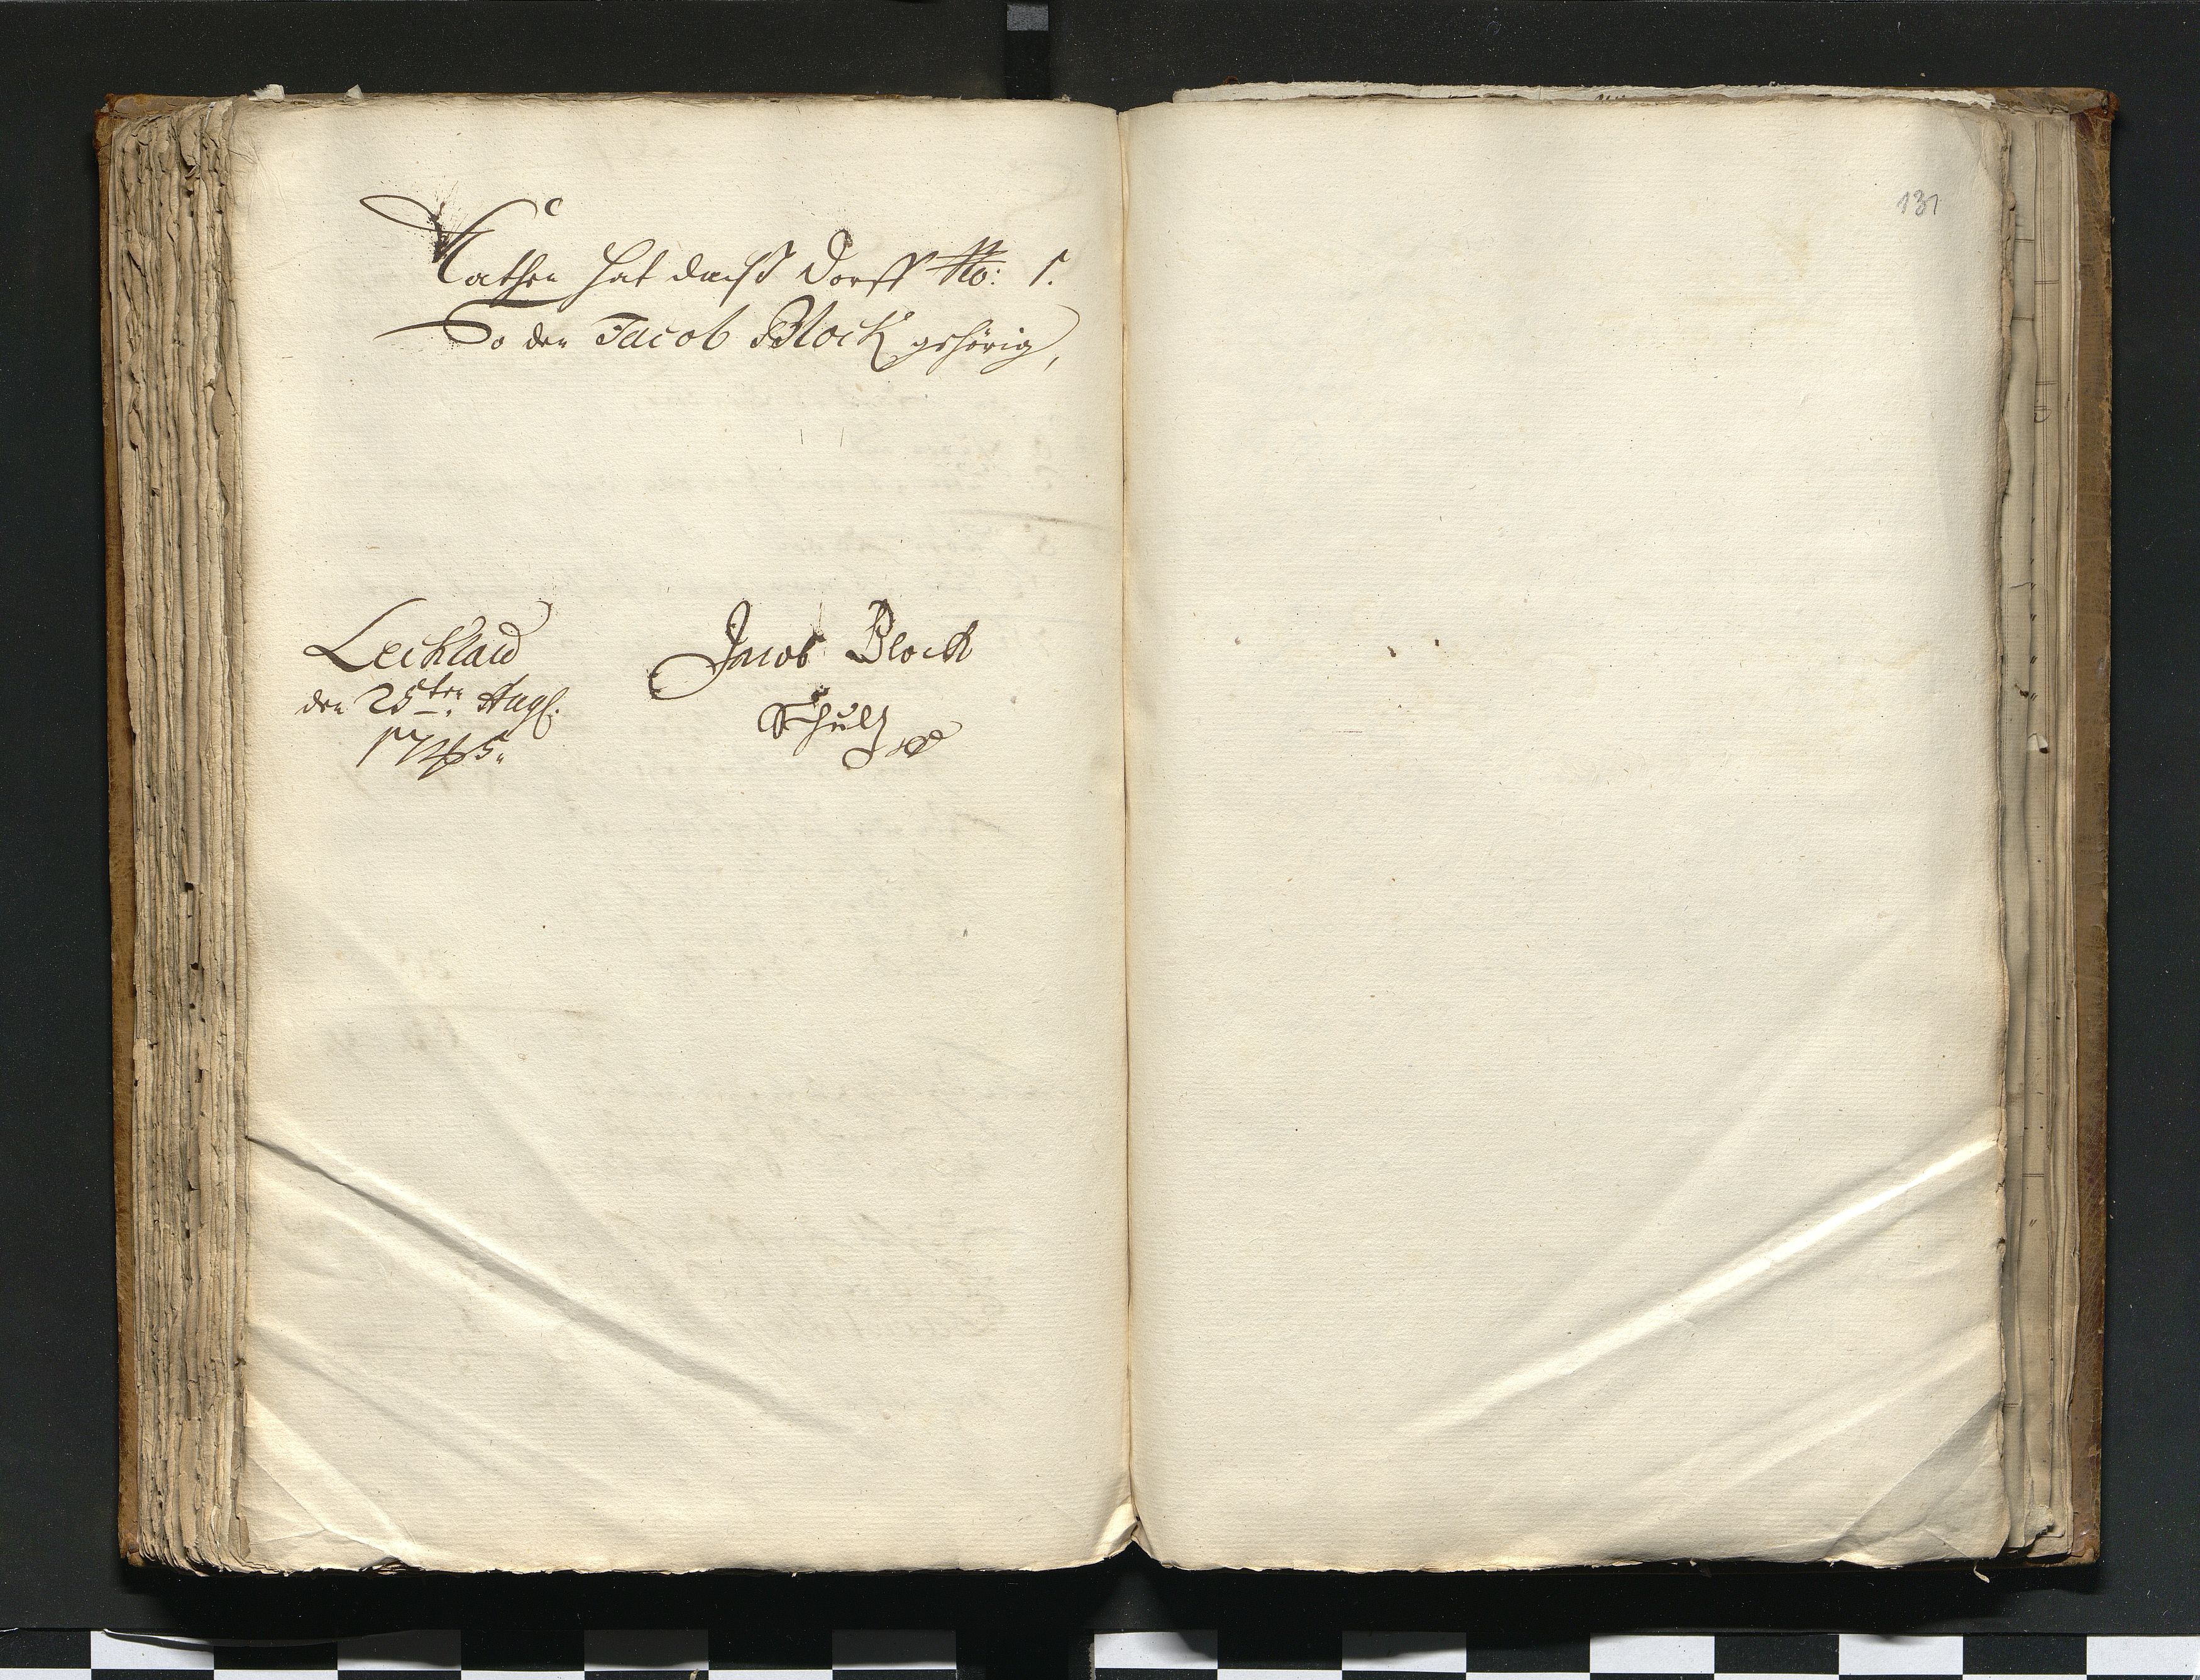 Kathen hat daß Dorff No: 1.
So den Jacob Block gehörig,
Lecklau
den 25ten Aug.
1745.
Jacob Block
Schultz
131